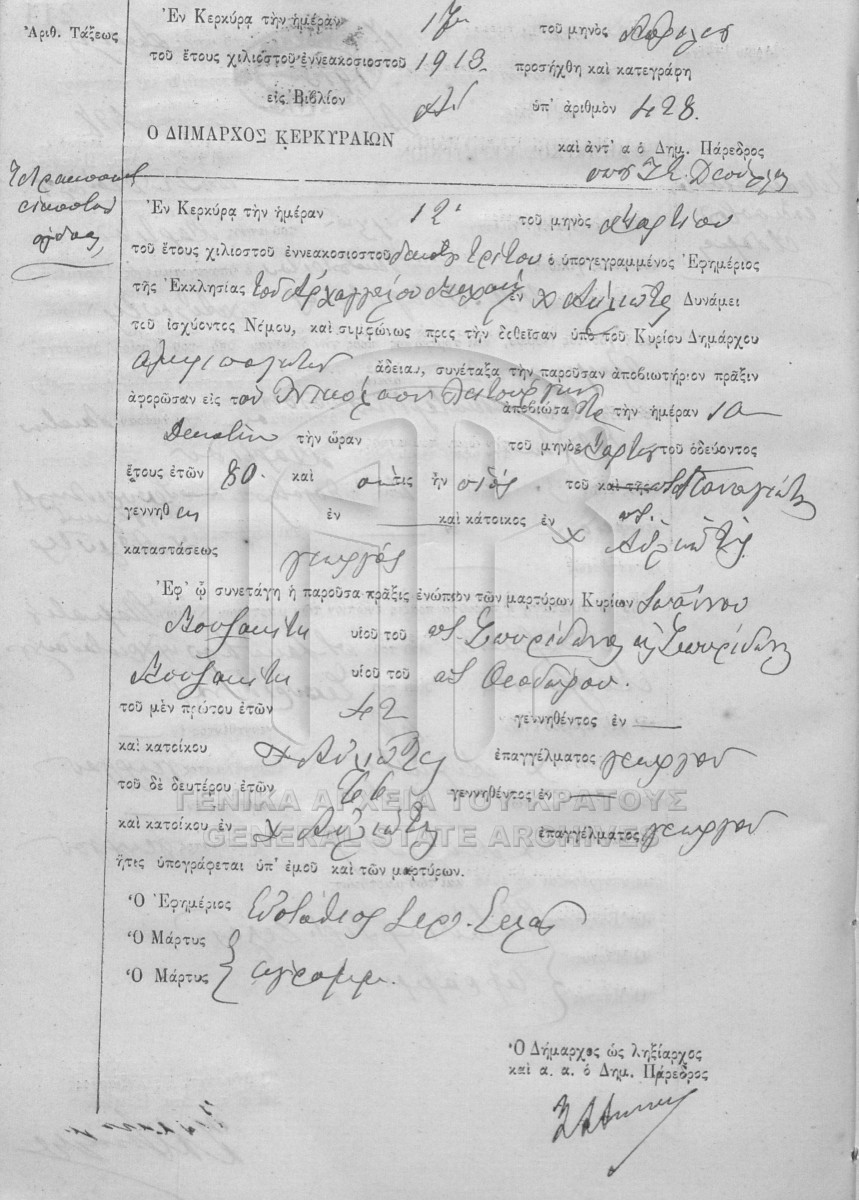 Ἀριθ. Τάξεως
Ἐν Κερκύρᾳ τὴν ἡμέραν 17η τοῦ μηνὸς Ἀπριλίου
τοῦ ἔτους χιλιοστοῦ ἐννεακοσιοστοῦ 1913 προσήχθη καὶ κατεγράφη
εἰς Βιβλίον ὑπ' ἀριθμὸν 428.
Ο ΔΗΜΑΡΧΟΣ ΚΕΡΚΥΡΑΙΩΝ
καὶ ἀντ' α ὁ Δημ. Πάρεδρος
Τετρακοσιοστ
εἰκοστὸν
ὄγδοον
Ἐν Κερκύρᾳ τὴν ἡμέραν 12 τοῦ μηνὸς Μαρτίου
τοῦ ἔτους χιλιοστοῦ ἐννεακοσιοστοῦ δεκάτου τρίτου ὁ ὑπογεγραμμένος Ἐφημέριος
τῆς Ἐκκλησίας τοῦ Ἀρχαγγέλου Μιχαὴλ ἐν χ Αὐλιώτες Δυνάμει
τοῦ ἰσχύοντος Νόμου, καὶ συμφώνως πρὸς τὴν δοθεῖσαν ὑπὸ τοῦ Κυρίου Δημάρχου
ἄδειαν, συνέταξα τὴν παροῦσαν ἀποβιωτήριον πρᾶξιν
ἀφορῶσαν εἰς τὸν Νικόλαον Λειτουργην
ἀποβιώσαντα τὴν ἡμέραν 10
Δεκάτην τὴν ὥραν τοῦ μηνὸς Μαρτίου τοῦ ὁδεύοντος
ἔτους ἐτῶν 80 καὶ ὅστις ἦν υἱὸς τοῦ καὶ τῆς π. Παναγιώτη
γεννηθ εὶς ἐν καὶ κάτοικος ἐν χ Αὐλιώτες
καταστάσεως γεωργός
Ἐφ' ᾧ συνετάγη ἡ παροῦσα πρᾶξις ἐνώπιον τῶν μαρτύρων Κυρίων Ἰωάννου
Βουζακίτη υἱοῦ τοῦ π. Σπυρίδωνος καὶ Σπυρίδωνος
Βουζακίτη υἱοῦ τοῦ π. Θεοδώρου.
τοῦ μὲν πρώτου ἐτῶν 42 γεννηθέντος ἐν
καὶ κατοίκου χ Αὐλιώτες ἐπαγγέλματος γεωργοῦ
τοῦ δὲ δευτέρου ἐτῶν γεννηθέντος ἐν
καὶ κατοίκου ἐν χ Αὐλιώτες ἐπαγγέλματος γεωργοῦ
ἥτις ὑπογράφεται ὑπ' ἐμοῦ καὶ τῶν μαρτύρων.
Ὁ Ἐφημέριος Εὐστάθιος
Ὁ Μάρτυς
Ὁ Μάρτυς } ἀγράμμ.
Ὁ Δήμαρχος ὡς ληξίαρχος
καὶ α. α. ὁ Δημ. Πάρεδρος
ΓΕΝΙΚΑ ΑΡΧΕΙΑ ΤΟΥ ΚΡΑΤΟΥΣ
GENERAL STATE ARCHIVES